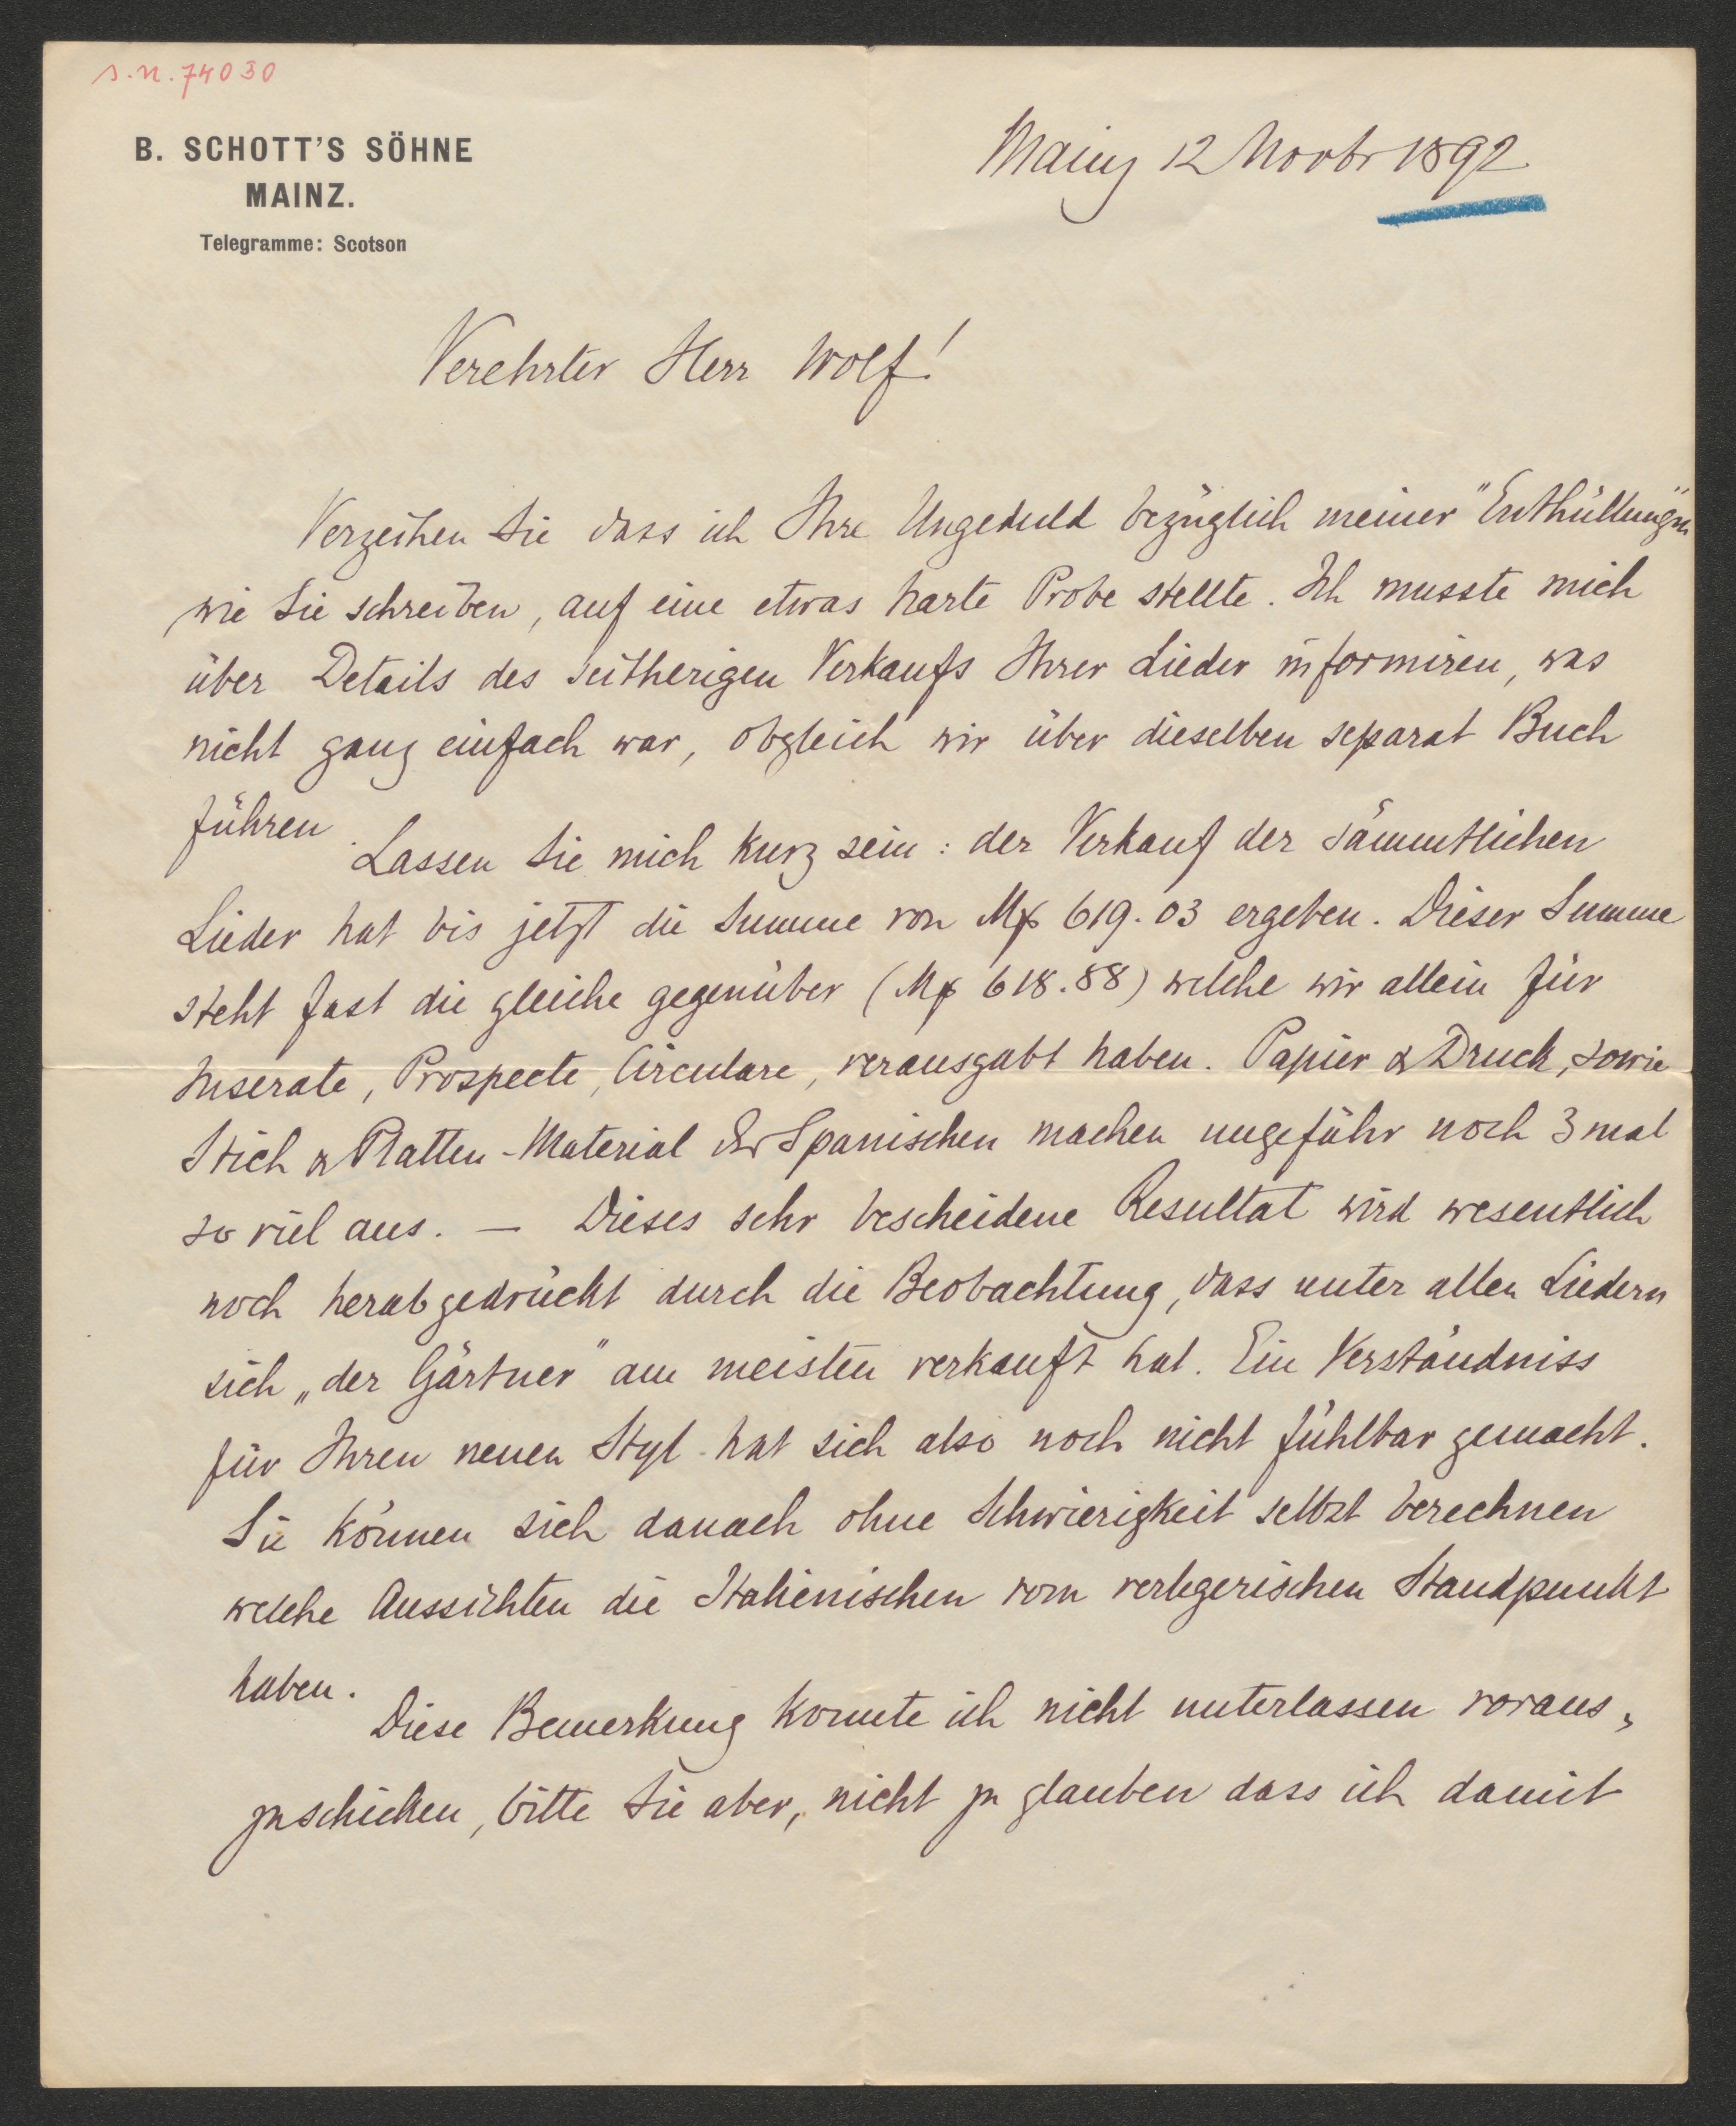 s.n. 74030
B. SCHOTT'S SÖHNE
MAINZ.
Telegramme: Scotson
Mainz 12 Novbr 1892
Verehrter Herr Wolf!
Verzeihen Sie dass ich Ihre Ungeduld bezüglich meiner "Enthüllungen"
wie Sie schreiben, auf eine etwas harte Probe stellte. Ich musste mich
über Details des seitherigen Verkaufs Ihrer Lieder informiren, was
nicht ganz einfach war, obgleich wir über dieselben separat Buch
führen.
Lassen Sie mich kurz sein: der Verkauf der sämmtlichen
Lieder hat bis jetzt die Summe von Mk 619.03 ergeben. Dieser Summe
steht fast die gleiche gegenüber (Mk 618.88) welche wir allein für
Inserate, Prospecte, Circulare, verausgabt haben. Papier & Druck, sowie
Stich & Platten-Material der Spanischen machen ungefähr noch 3 mal
so viel aus. — Dieses sehr bescheidene Resultat wird wesentlich
noch herabgedrückt durch die Beobachtung, dass unter allen Liedern
sich „der Gärtner" am meisten verkauft hat. Ein Verständniss
für Ihren neuen Styl hat sich also noch nicht fühlbar gemacht.
Sie können sich danach ohne Schwierigkeit selbst berechnen
welche Aussichten die Italienischen vom verlegerischen Standpunkt
haben.
Diese Bemerkung konnte ich nicht unterlassen voraus-
zuschicken, bitte Sie aber, nicht zu glauben dass ich damit